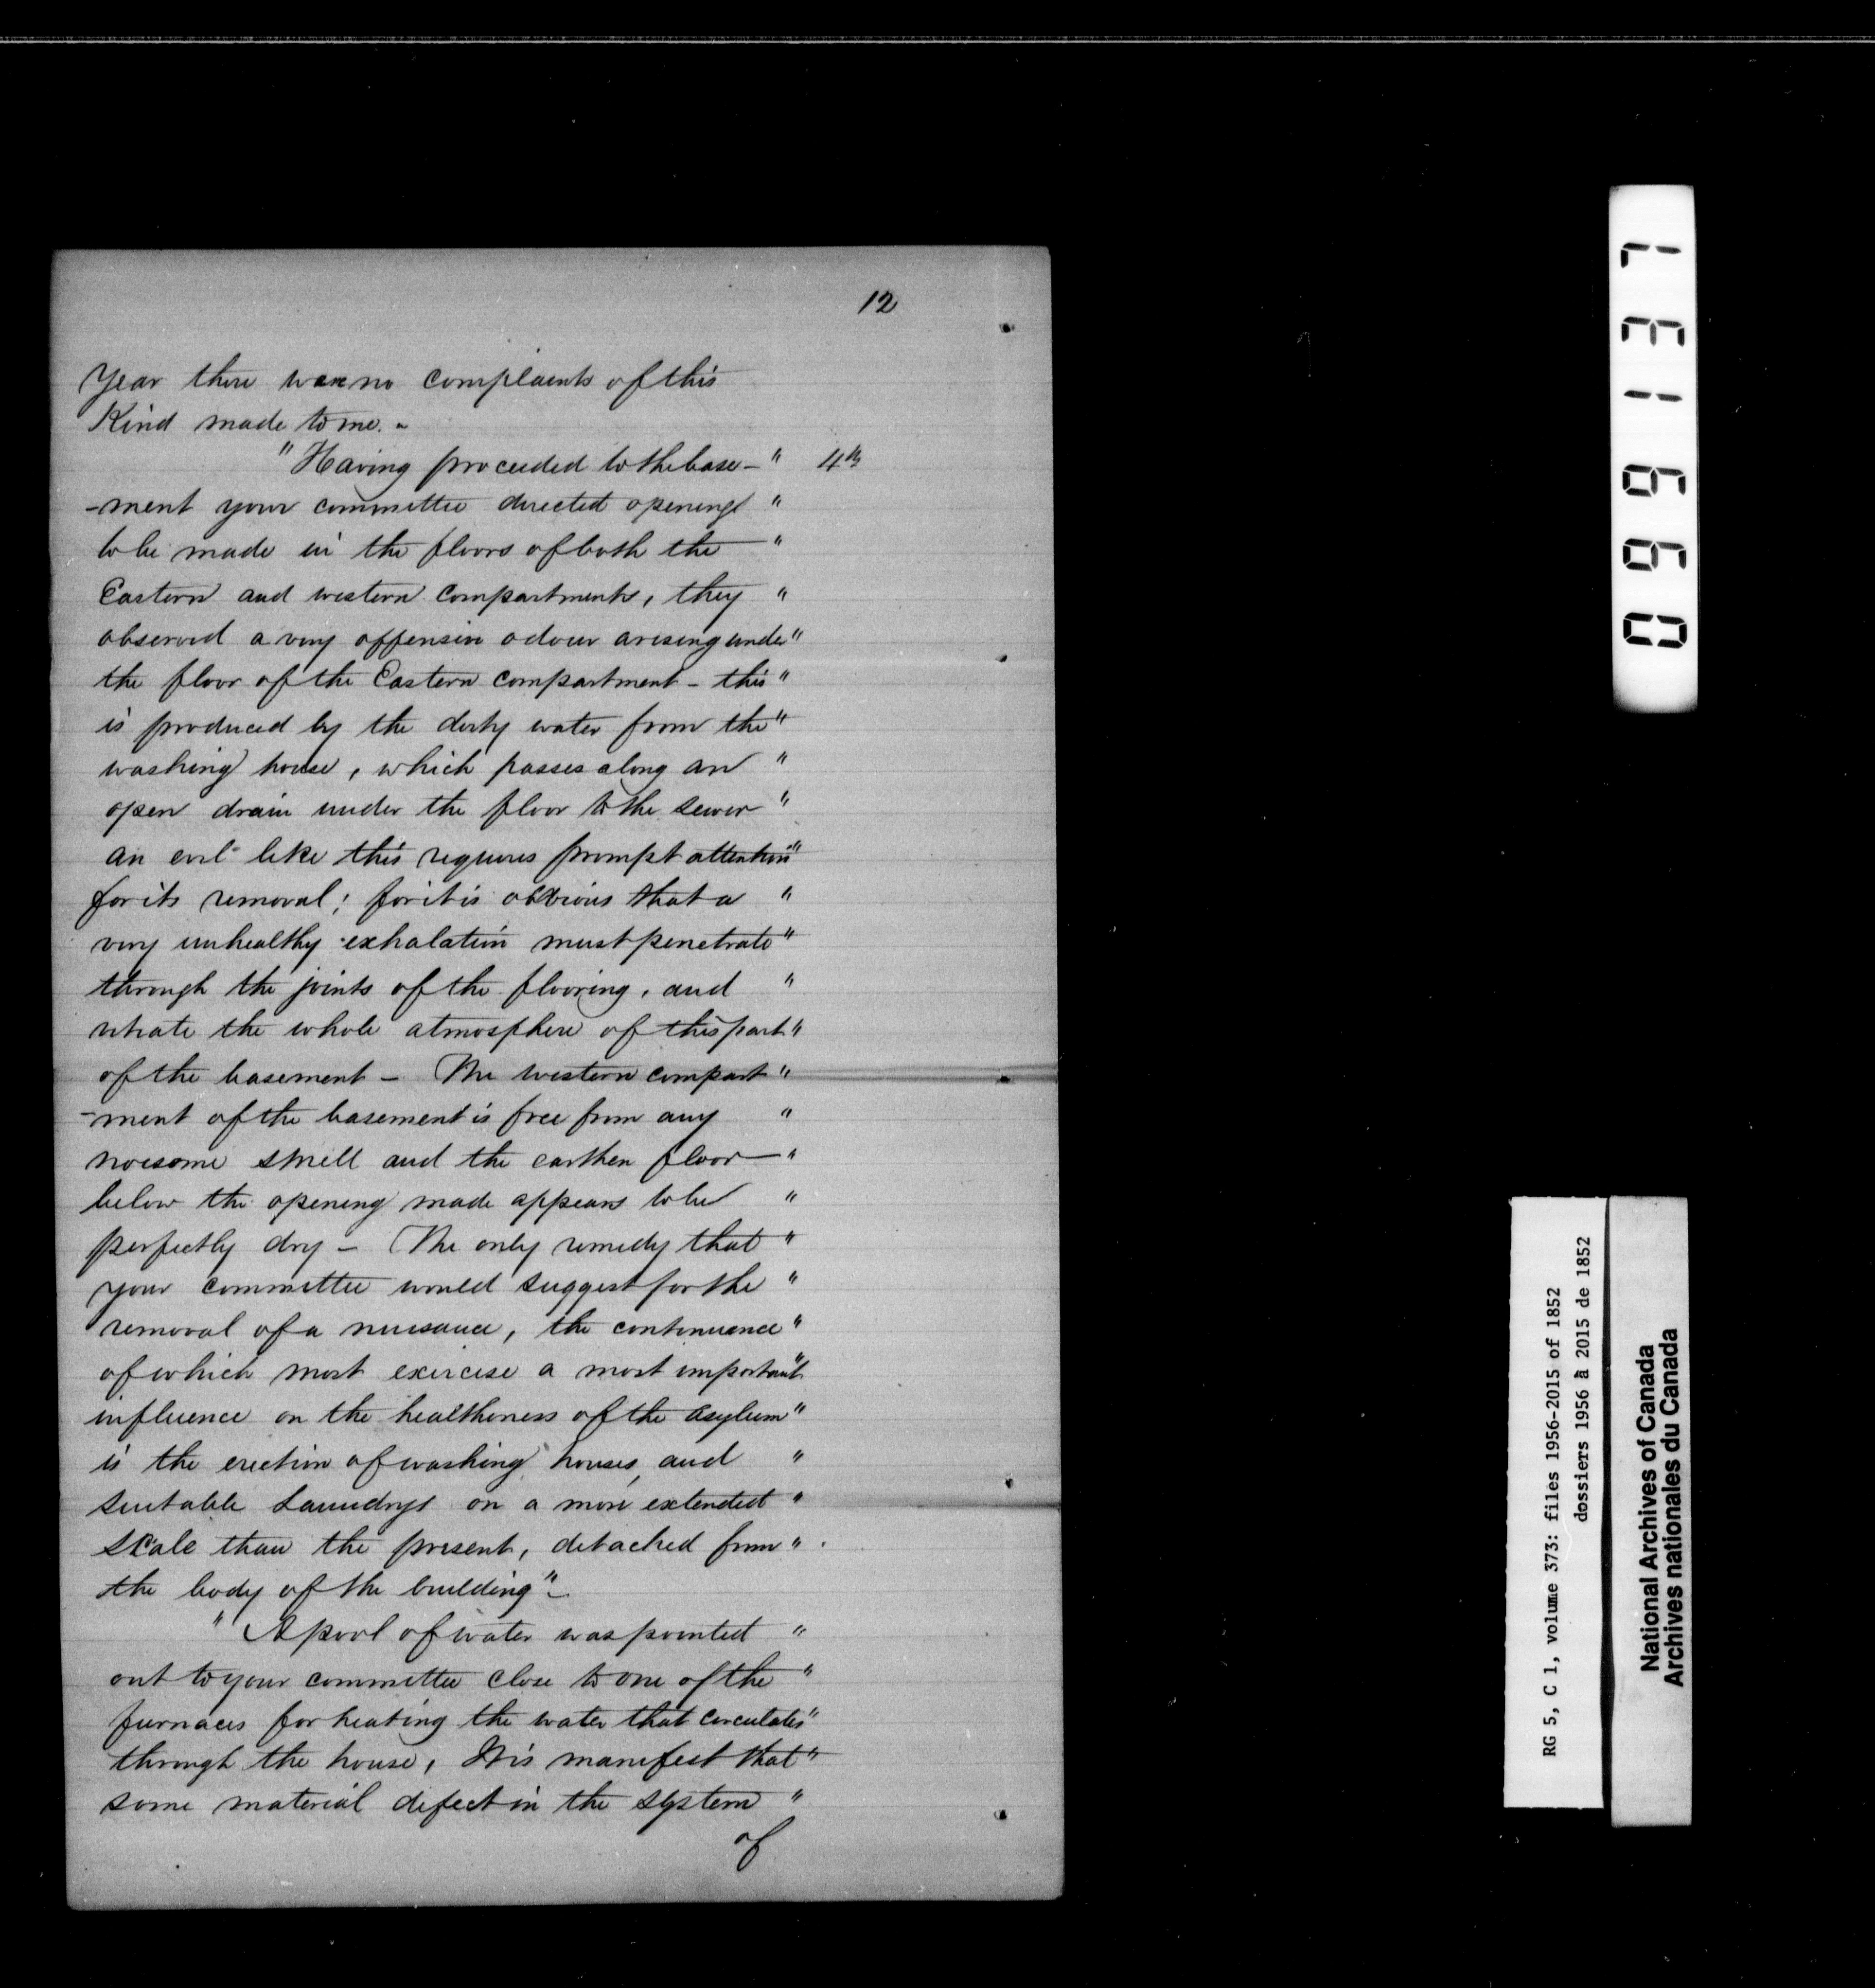 12
Year there was no complaints of this
Kind made to me. -
"Having proceeded to the base- " 4th
-ment your committee directed openings "
to be made in the floors of both the "
Eastern and western compartments, they "
observed a very offensive odour arising under "
the floor of the Eastern compartment - this "
is produced by the dirty water from the "
washing house, which passes along an "
open drain under the floor to the sewer "
an evil like this requires prompt attention "
for its removal; for it is obvious that a "
very unhealthy exhalation must penetrate "
through the joints of the flooring, and "
vitiate the whole atmosphere of this part "
of the basement - The western compart "
-ment of the basement is free from any "
noisome smell and the earthen floor "
below the opening made appears to be "
perfectly dry - The only remedy that "
your committee would suggest for the "
removal of a nuisance, the continuance "
of which most exercise a most important "
influence on the healthiness of the asylum "
is the erection of washing houses, and "
suitable Laundrys on a more extended "
scale than the present, detached from "
the body of the building" -
" A pool of water was pointed "
out to your committee close to one of the "
furnaces for heating the water that circulates "
through the house, It is manifest that "
some material defect in the system "
of
099137
RG 5, C 1, volume 373: files 1956-2015 of 1852
dossiers 1956 à 2015 de 1852
National Archives of Canada
Archives nationales du Canada